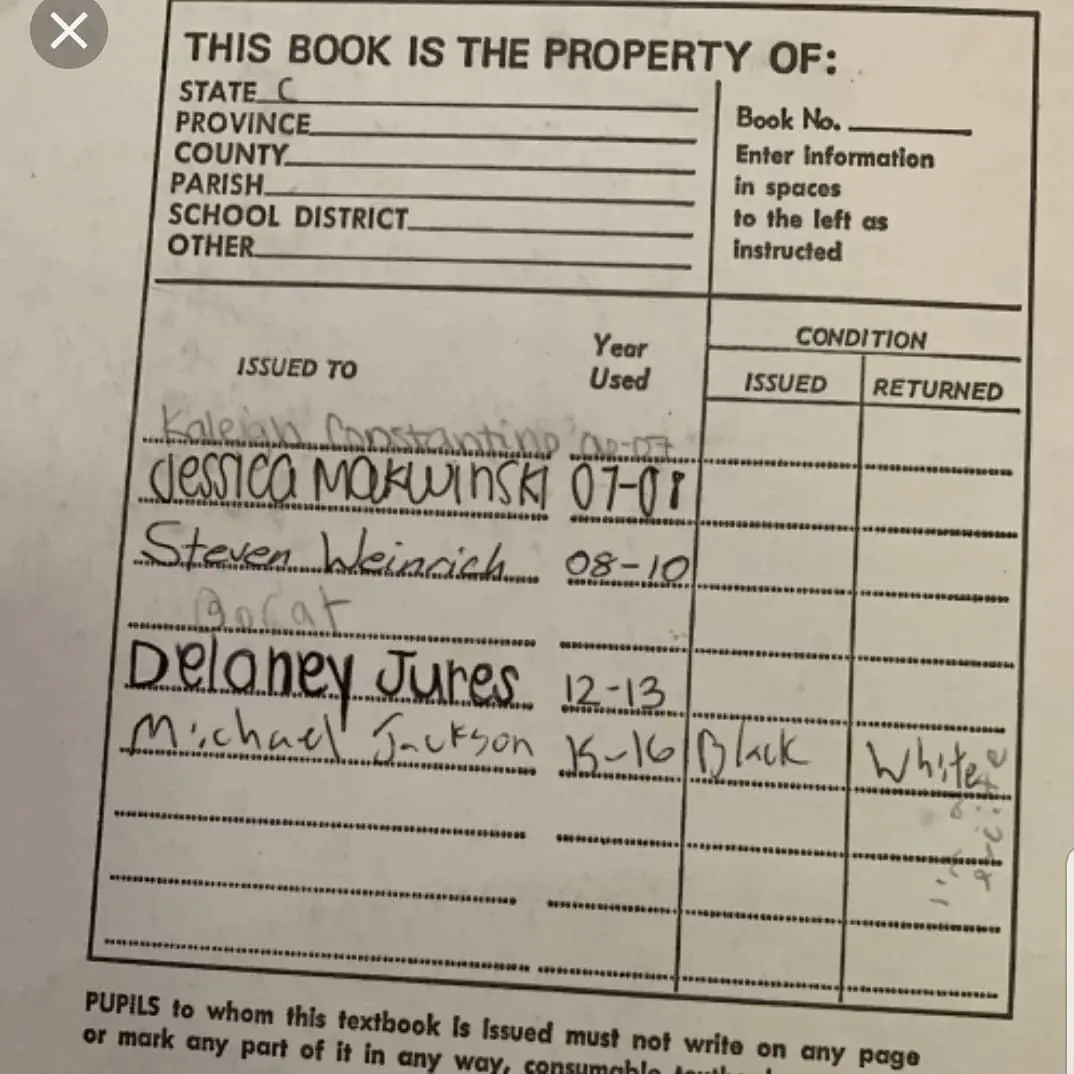 THIS BOOK IS THE PROPERTY OF:
STATE C
PROVINCE
COUNTY
PARISH
SCHOOL DISTRICT
OTHER
Book No.
Enter information
in spaces
to the left as
instructed
ISSUED TO
Year
Used
CONDITION
ISSUED
RETURNED
Kaleigh Constantino
Jessica Makwinski 07-08
Steven Weinrich 08-10
Borat
Delaney Jures 12-13
Michael Jackson 15-16 Black White
PUPILS to whom this textbook is issued must not write on any page
or mark any part of it in any way, consumable